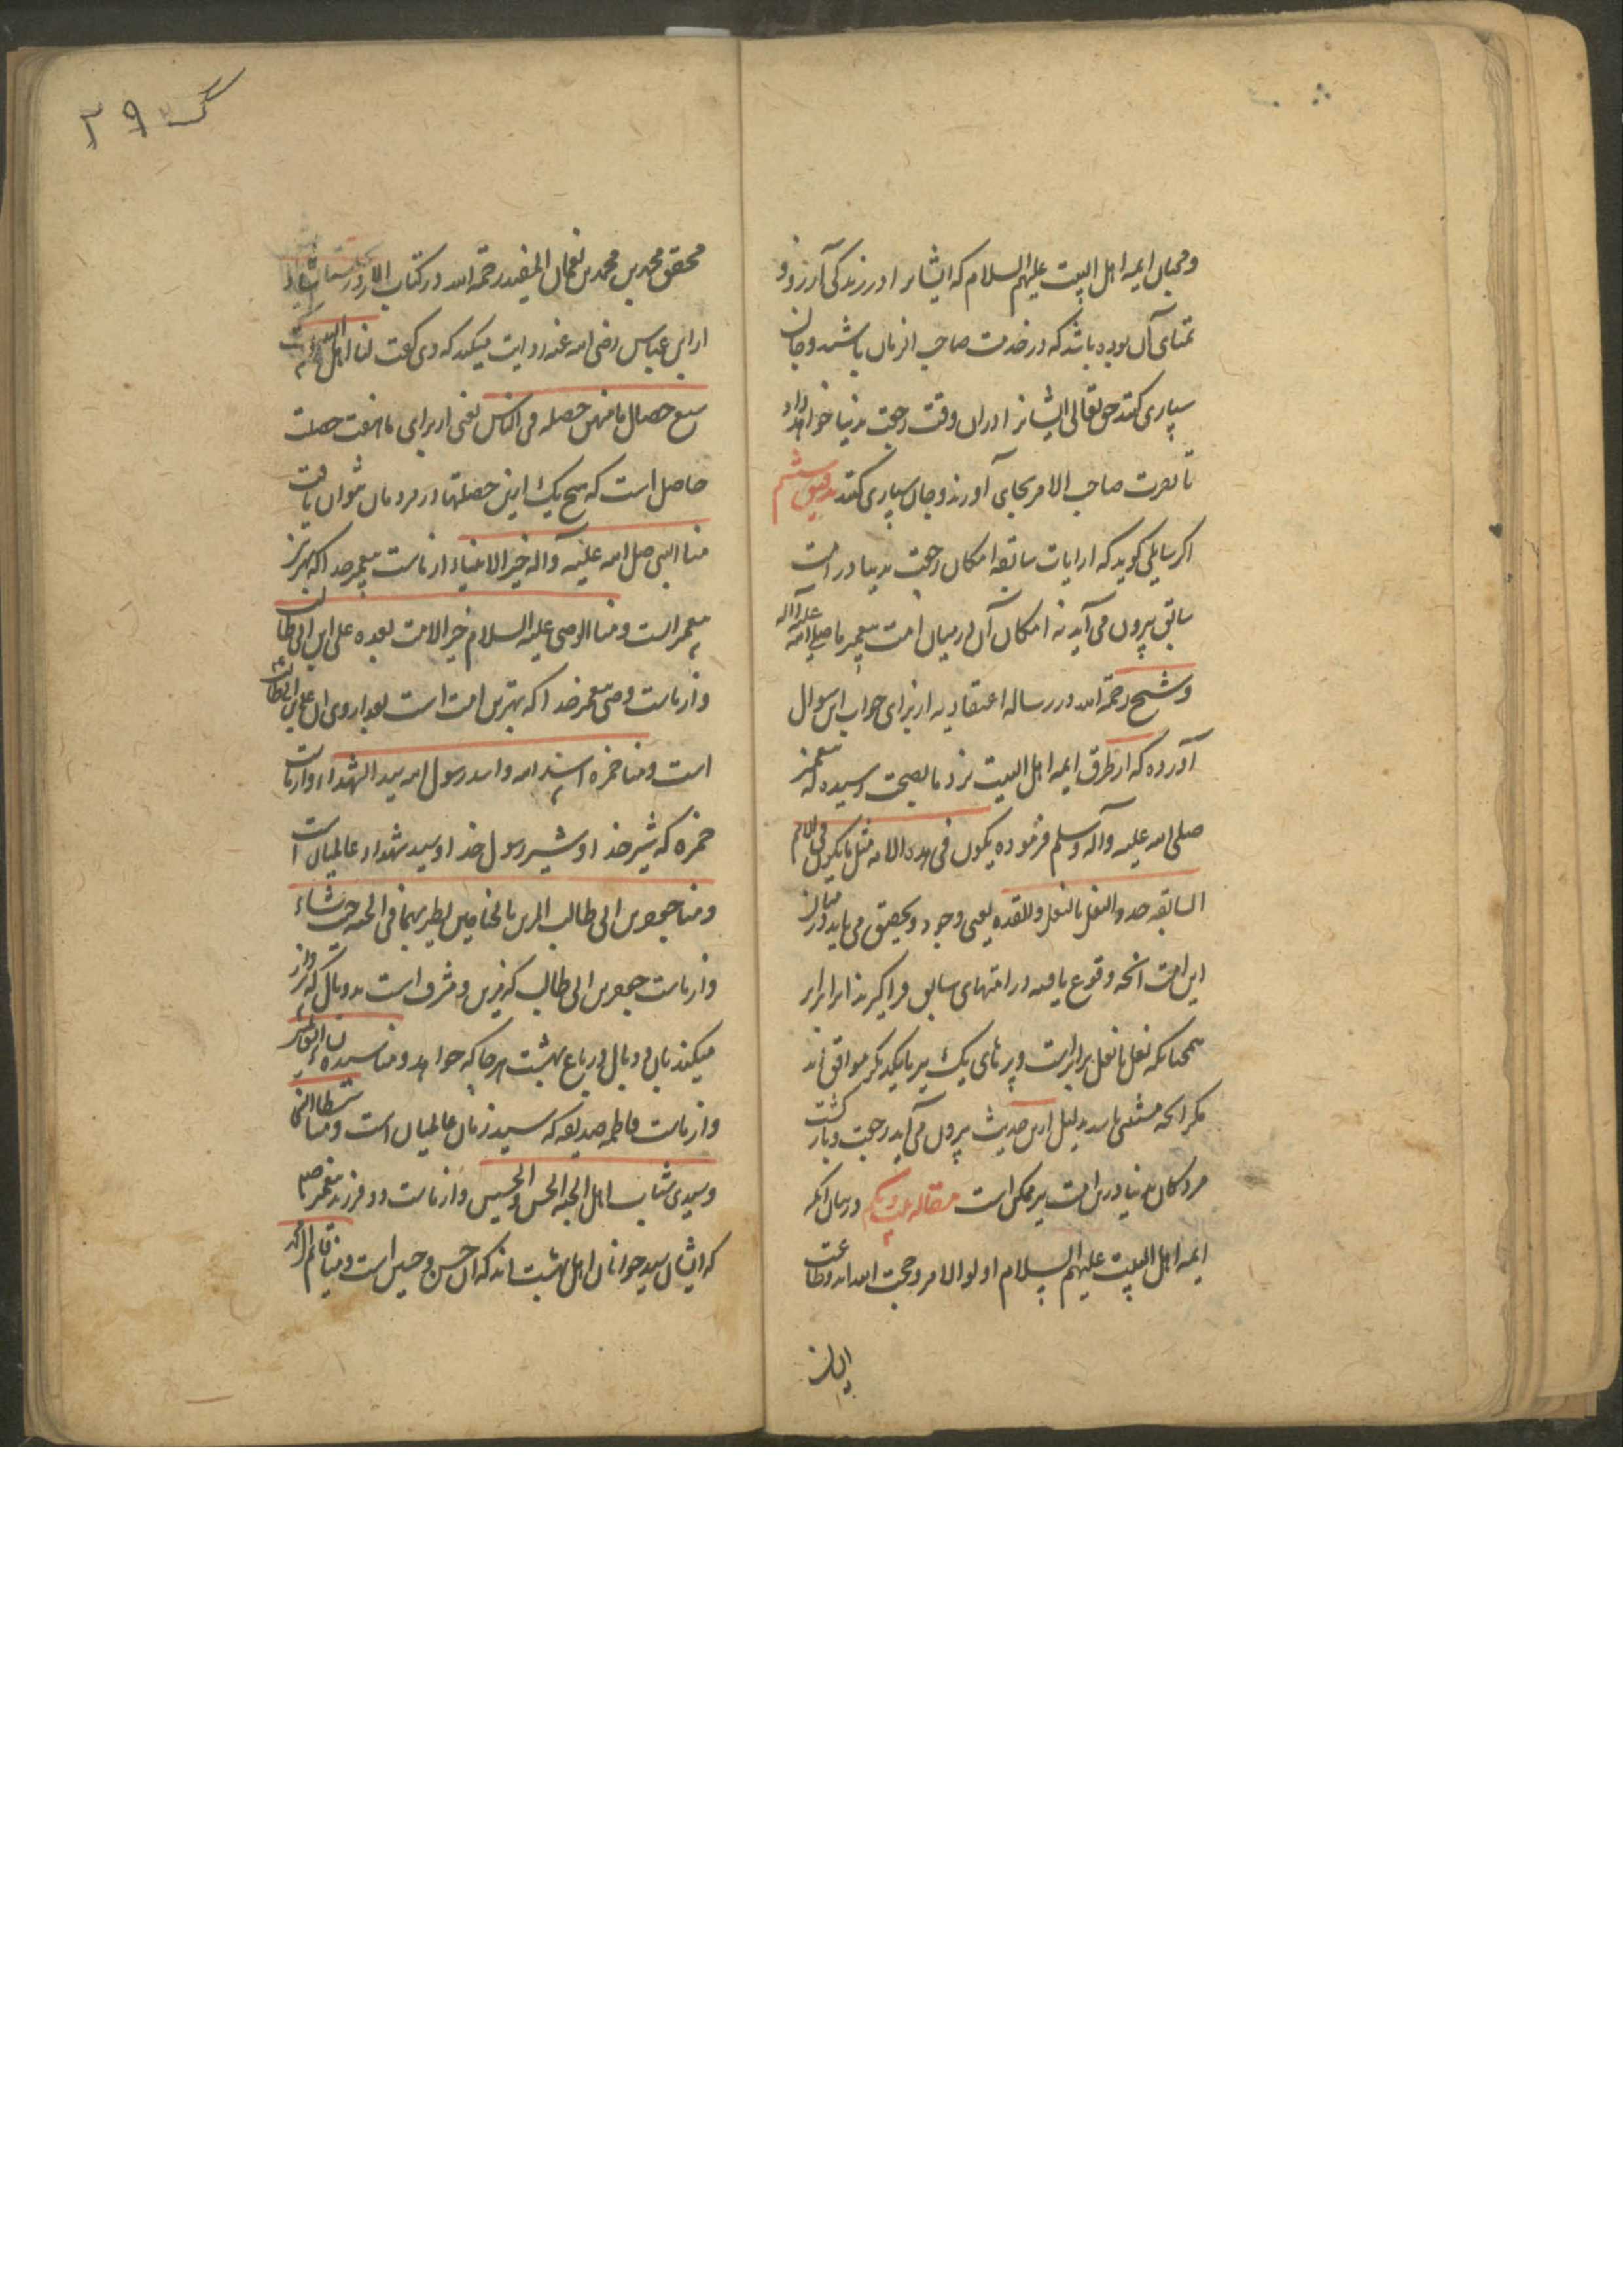 ومحبان ایمه اهل البیت علیهم السلام که ایشانرا در زندکی آرزو و
تمنای آن بوده باشد که در خدمت صاحب الزمان باشند و جان
سپاری کنند حق تعالی ایشانرا در ان وقت رجعت بدنیا خواهد داد
تا نصرت صاحب الامر بجای آورند و جان سپاری کنند تدقیق ششم
اکر سایلی کوید که از ایات سابقه امکان رجعت بدنیا در امت
سابق بیرون می آید نه امکان آن در میان امت پیغمبر ما صلی الله علیه و اله
و شیخ رحمة الله در رساله اعتقادیه از برای جواب این سوال
آورده که از طرق ایمه اهل البیت نزد ما بصحت رسیده که پیغمبر
صلی الله علیه وآله وسلم فرموده یکون فی هذه الامه مثل ما یکون فی الامم
السابقه حذو النعل بالنعل والقذه یعنی وجود و تحقیق می یابد در میان
این امت انچه وقوع یافته در امتهای سابق فراکیرند برابر
همچنانکه نعل با نعل برابرست و پرهای یک تیر با یکدیکر موافق اند
مکر انچه مستثنی باشد بدلیل از این حدیث بیرون می آید رجعت و بازکشت
مردکان بدنیا در این امت نیز ممکن است مقاله بیست و یکم در بیان انکه
ایمه اهل البیت علیهم السلام اولوالامر و حجت الله اند و طاعت
ایشان
۲۹
محقق محمد بن محمد بن نعمان المفید رحمة الله در کتاب الارشاد
از ابن عباس رضی الله عنه روایت میکند که وی کفت لنا اهل البیت
سبع خصال ما منهن خصله فی الناس یعنی از برای ما هفت خصلت
حاصل است که هیچ یک از این خصلتها در مردمان نتوان یافت
منا النبی صلی الله علیه و اله خیر الانبیاء از ماست پیغمبر خدا که بهترین
پیغمبر است و منا الوصی علیه السلام خیر الامت بعده علی ابن ابی طالب
و از ماست وصی پیغمبر خدا که بهترین امت است بعد از وی ان علی بن ابی طالب
است و منا حمزه اسد الله و اسد رسول الله سید الشهداء و از ماست
حمزه که شیر خدا و شیر رسول خدا و سید شهداء عالمیان است
و منا جعفر بن ابی طالب المزین بالجناحین یطیر بهما فی الجنه حیث شاء
و از ماست جعفر بن ابی طالب که مزین و مشرف است بدو بال که پرواز
میکند بان دو بال در باغ بهشت هر جا که خواهد و منا سیده نساء العالمین
و از ماست فاطمه صدیقه که سیده زنان عالمیان است و منا سبطا النبی
و سیدی شباب اهل الجنه الحسن والحسین و از ماست دو فرزند پیغمبر
که ایشان سید جوانان اهل بهشت اند که ان حسن و حسین است و منا قائم